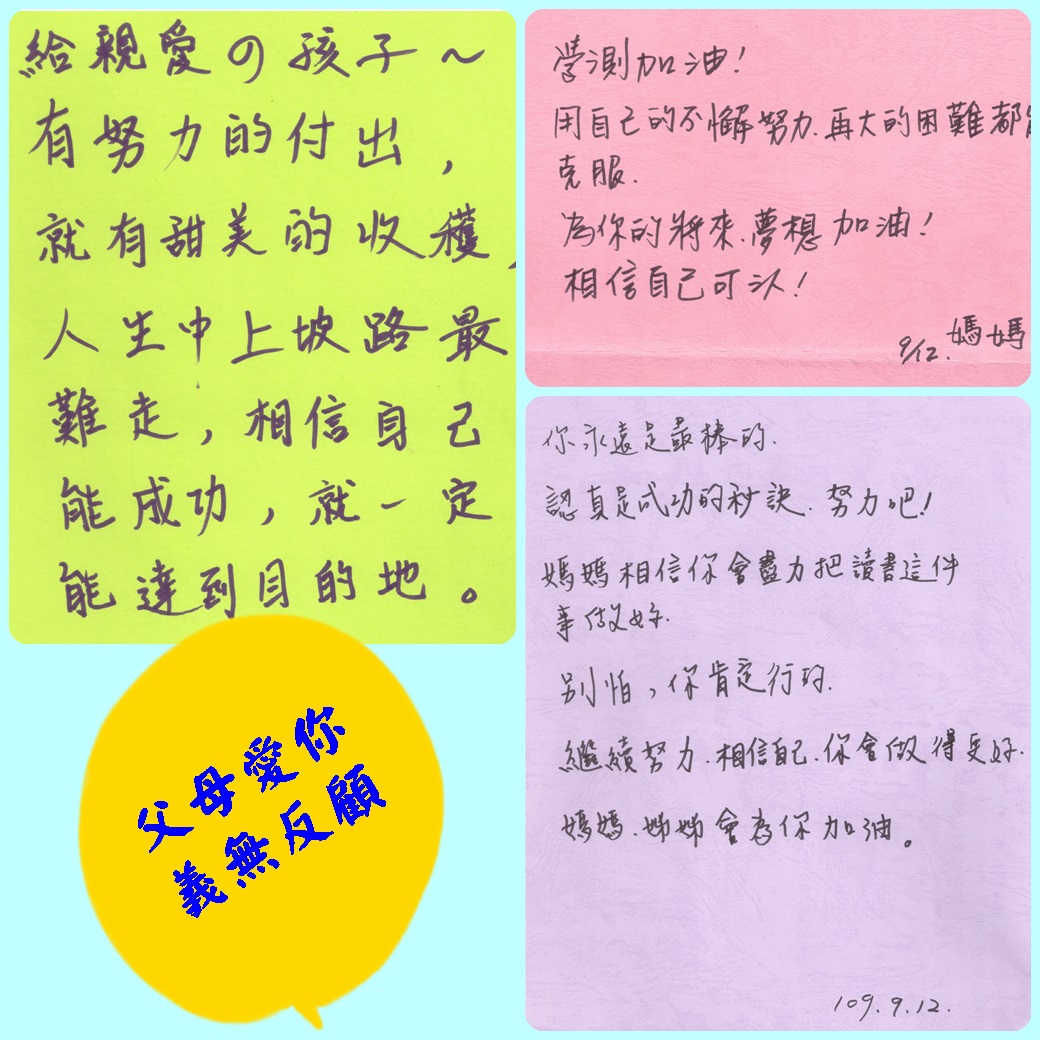 給親愛の孩子～
有努力的付出，
就有甜美的收穫，
人生中上坡路最
難走，相信自己
能成功，就一定
能達到目的地。
學測加油！
用自己的不懈努力.再大的困難都能
克服.
為你的將來.夢想加油！
相信自己可以！
媽媽
9/12.
你永遠是最棒的.
認真是成功的秘訣.努力吧！
媽媽相信你會盡力把讀書這件
事做好.
別怕，你肯定行的.
繼續努力.相信自己.你會做得更好.
媽媽.姊姊會為你加油。
109.9.12.
父母愛你
義無反顧